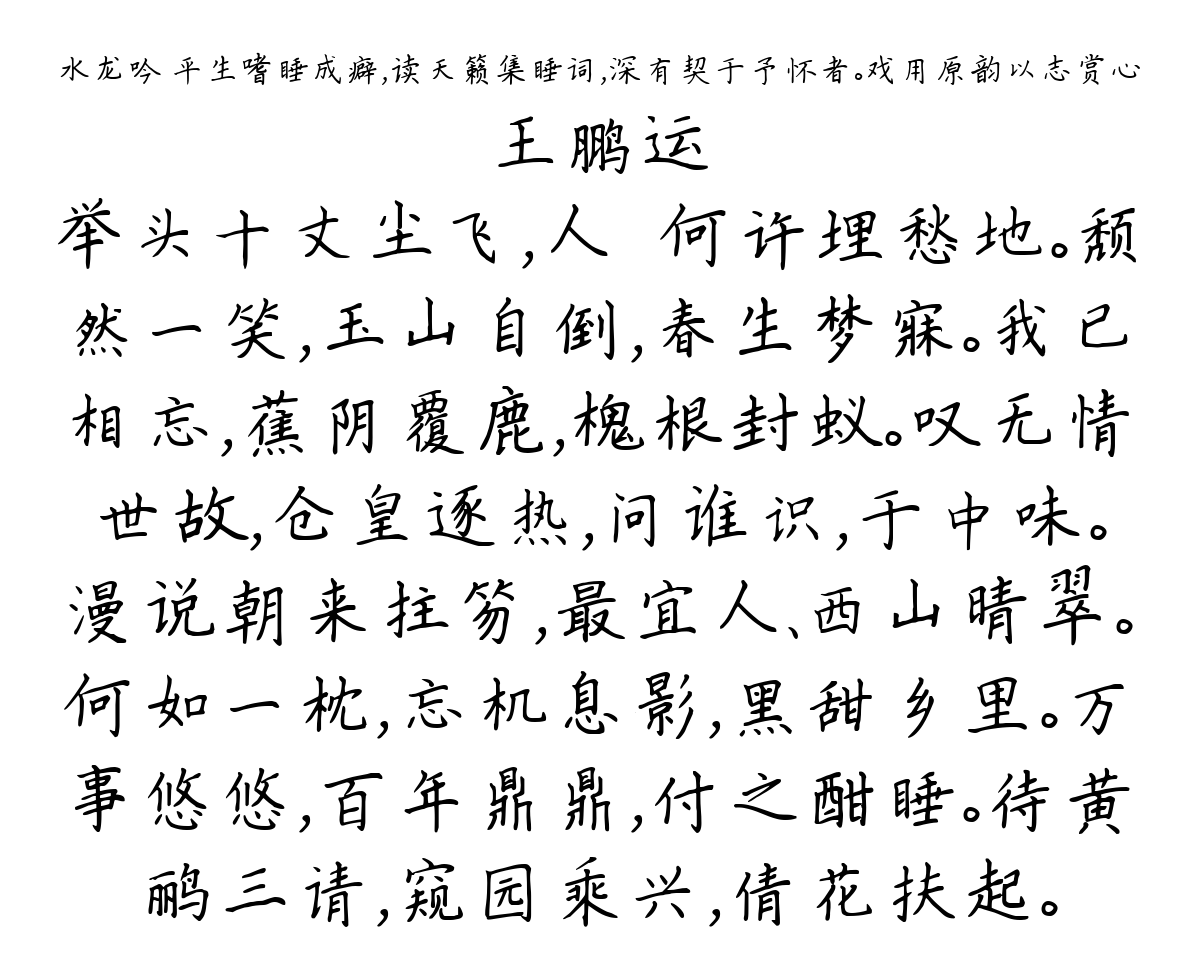 水龙吟 平生嗜睡成癖,读天籁集睡词,深有契于予怀者。戏用原韵以志赏心
王鹏运
举头十丈尘飞,人 何许埋愁地。颓
然一笑,玉山自倒,春生梦寐。我已
相忘,蕉阴覆鹿,槐根封蚁。叹无情
世故,仓皇逐热,问谁识,于中味。
漫说朝来拄笏,最宜人、西山晴翠。
何如一枕,忘机息影,黑甜乡里。万
事悠悠,百年鼎鼎,付之酣睡。待黄
鹂三请,窥园乘兴,倩花扶起。